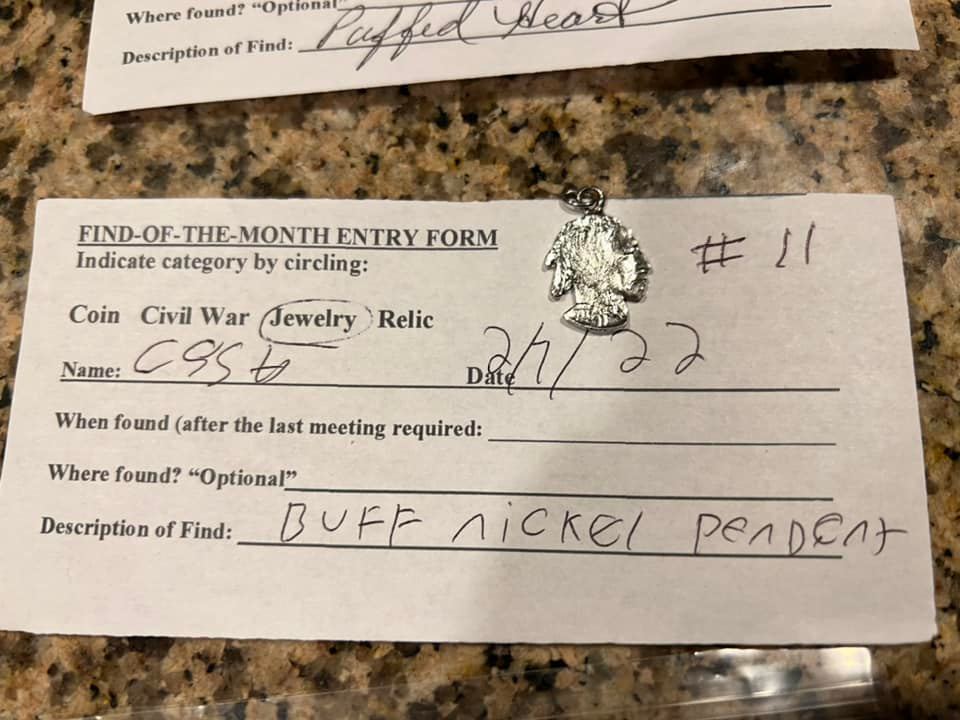 Where found? “Optional”
Description of Find: Puffed Heart
FIND-OF-THE-MONTH ENTRY FORM
# 11
Indicate category by circling:
Coin Civil War Jewelry Relic
Name: Date 2/7/22
When found (after the last meeting required:
Where found? “Optional”
Description of Find: BUFF nickel pendent